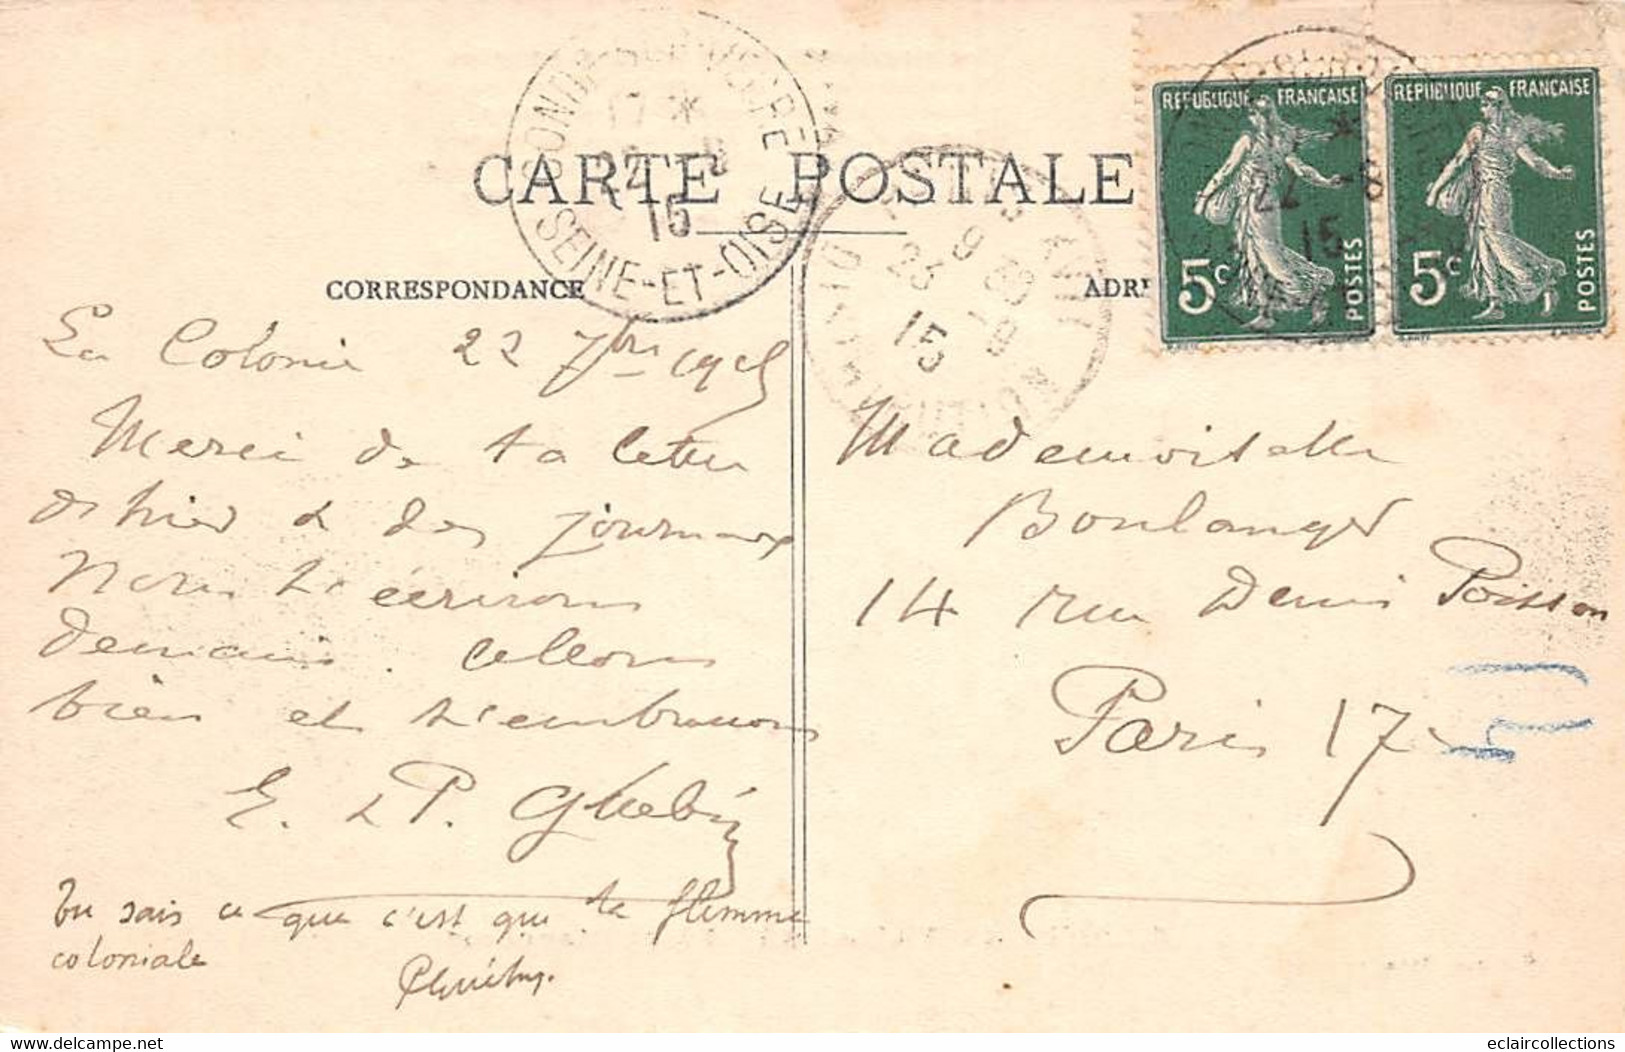 CARTE POSTALE
CORRESPONDANCE
La Colonie 22 7bre 1915
Merci de ta lettre
d'hier & des journaux
Nous t'écrirons
demain. allons
bien et t'embrassons
E. & P.
Tu sais ce que c'est que la flemme
coloniale
Mademoiselle
Boulanger
14 rue Denis Poisson
Paris 17
REPUBLIQUE FRANÇAISE
5c
POSTES
REPUBLIQUE FRANÇAISE
5c
POSTES
SEINE-ET-OISE
17 *
22 -9
15
22 -9
15
23 -9
15
eclaircollections